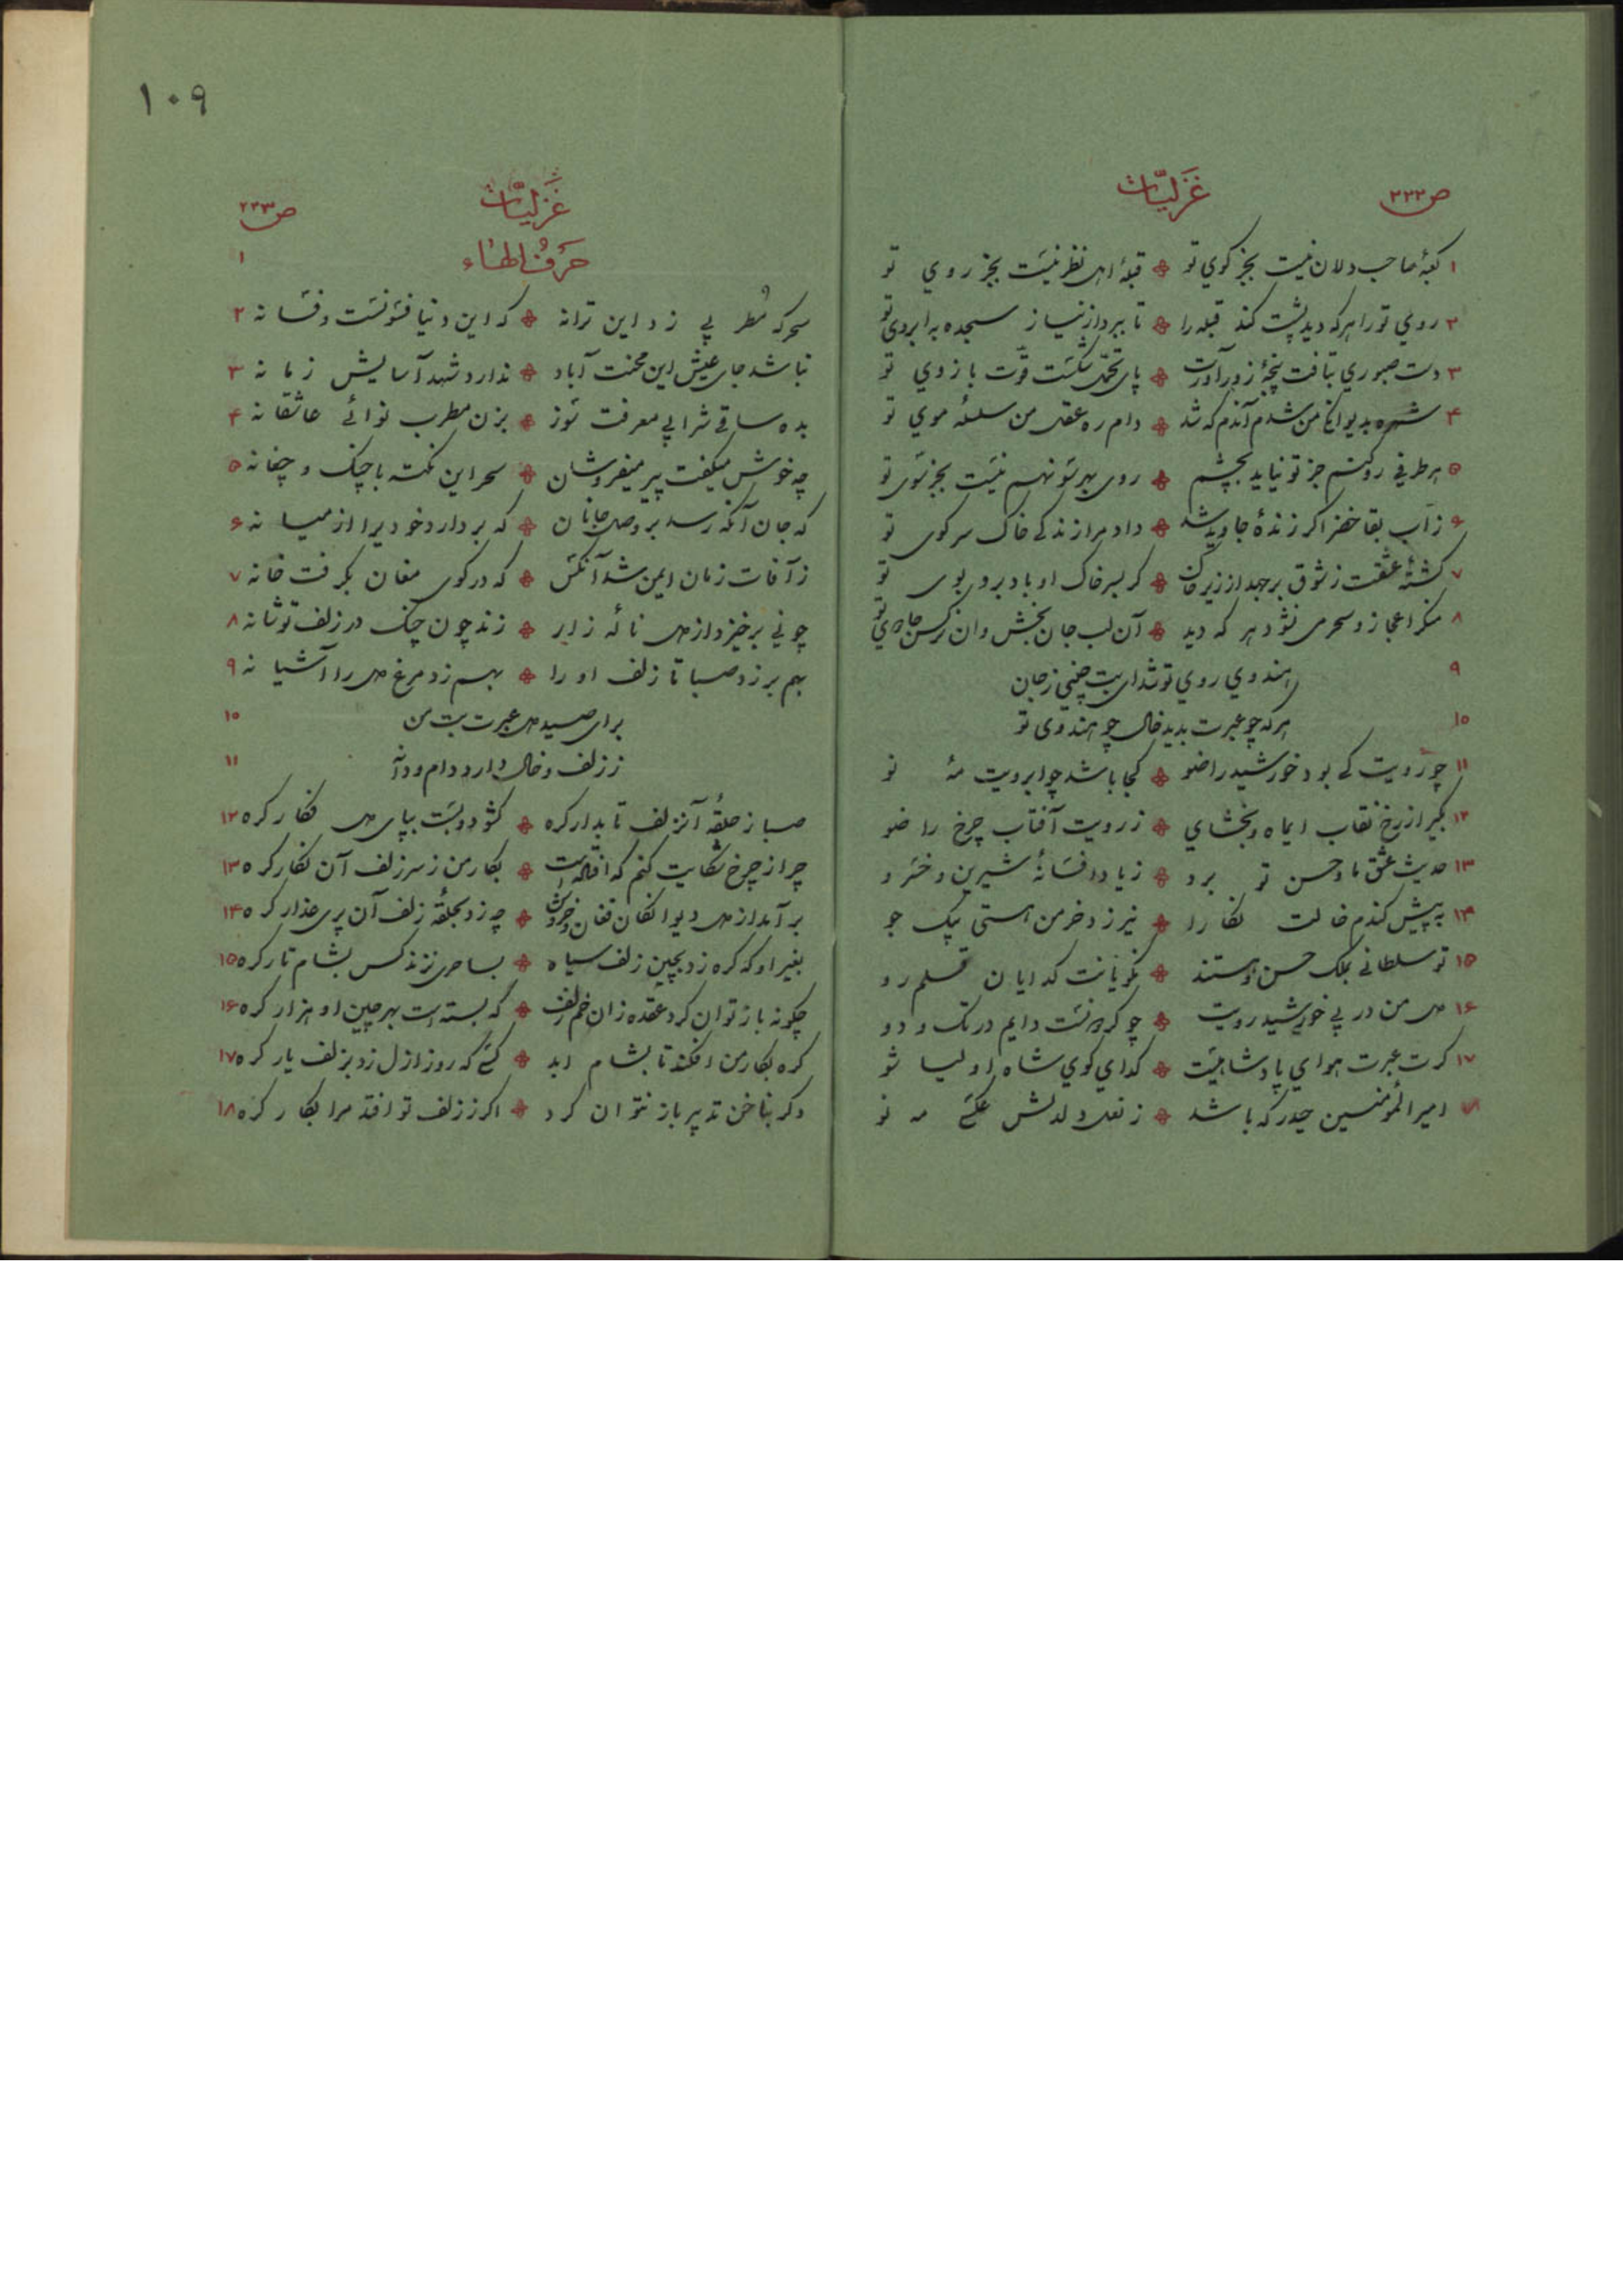 ص ۲۳۲
غزلیّات
۱ کعبهٔ صاحب دلان نیست بجز کوی تو قبلهٔ اهل نظر نیست بجز روی تو
۲ روی تو را هرکه دید پشت کند قبله را تا ببرد از نیاز سجده به ابروی تو
۳ دست صبوری بتافت پنجهٔ زورآورت پای تحمّل شکست قوّت بازوی تو
۴ شهره بدیوانگی من شدم آندم که شد دام ره عقل من سلسلهٔ موی تو
۵ هر طرفی رو کنم جز تو نیاید بچشم روی بهر سو نهم نیست بجز سوی تو
۶ زآب بقا خضر اکر زندهٔ جاوید شد داد مرا زندکی خاک سر کوی تو
۷ کشتهٔ عشقت ز شوق برجهد از زیر خاک کر بسر خاک او باد برد بوی تو
۸ منکر اعجاز و سحر می نشود هر که دید آن لب جان بخش وان نرکس جادوی تو
۹ هندوی روی تو شد ای بت چینی ز جان
۱۰ هرکه چو عبرت بدید خال چو هندوی تو
۱۱ چو رویت کی بود خورشید را ضو کجا باشد چو ابرویت مه نو
۱۲ بکیر از رخ نقاب ایماه و بخشای ز رویت آفتاب چرخ را ضو
۱۳ حدیث عشق ما و حسن تو برد ز یاد افسانهٔ شیرین و خسرو
۱۴ به پیش کندم خالت نکارا نیرزد خرمن هستی بیک جو
۱۵ تو سلطانی بملک حسن و هستند نکویانت کدایان قلمرو
۱۶ دل من در پی خورشید رویت چو کردونست دایم در تک و دو
۱۷ کرت عبرت هوای پادشاهیست کدای کوی شاه اولیا شو
۱۸ امیرالمؤمنین حیدر که باشد ز نعل دلدلش عکسی مه نو
۱۰۹
غزلیّات
ص ۲۳۳
حرف الهاء ۱
سحرکه مطربی زد این ترانه که این دنیا فسونست و فسانه ۲
نباشد جای عیش این محنت آباد ندارد شهد آسایش زمانه ۳
بده ساقی شرابی معرفت سوز بزن مطرب نوائی عاشقانه ۴
چه خوش میکفت پیر میفروشان سحر این نکته با چنک و چغانه ۵
که جان آنکه رسد بر وصل جانان که بردارد خودی را از میانه ۶
ز آفات زمان ایمن شد آنکس که در کوی مغان بکرفت خانه ۷
چو نی برخیزد از دل نالهٔ زار زند چون چنک در زلف تو شانه ۸
بهم بر زد صبا تا زلف او را بهم زد مرغ دل را آشیانه ۹
برای صید دل عبرت بت من ۱۰
ز زلف و خال دارد دام و دانه ۱۱
صبا ز حلقهٔ آنزلف تابدار کره کشود و بست بپای دل فکار کره ۱۲
چرا ز چرخ شکایت کنم که افتاده است بکار من ز سر زلف آن نکار کره ۱۳
برآمد از دل دیوانکان فغان و خروش چه زد بحلقهٔ زلف آن پری عذار کره ۱۴
بغیر او که کره زد بچین زلف سیاه بساحری نزند کس بشام تار کره ۱۵
چکونه باز توان کرد عقده زان خم زلف که بسته است بهر چین او هزار کره ۱۶
کره بکار من افکند تا بشام ابد کسی که روز ازل زد بزلف یار کره ۱۷
دکر بناخن تدبیر باز نتوان کرد اکر ز زلف تو افتد مرا بکار کره ۱۸